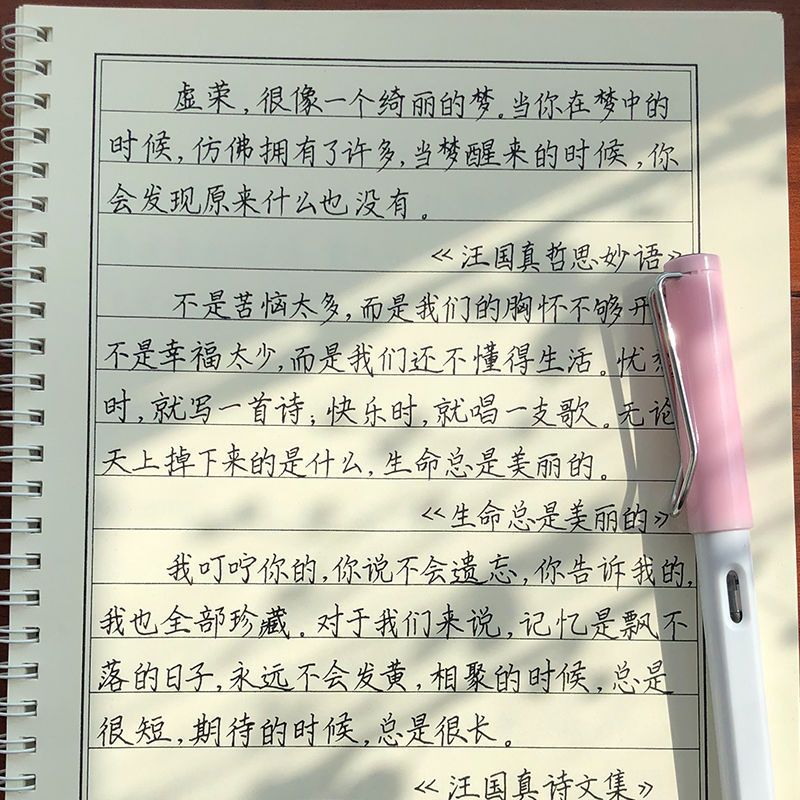 虚荣，很像一个绮丽的梦。当你在梦中的
时候，仿佛拥有了许多，当梦醒来的时候，你
会发现原来什么也没有。
《汪国真哲思妙语》
不是苦恼太多，而是我们的胸怀不够开
不是幸福太少，而是我们还不懂得生活。忧
时，就写一首诗；快乐时，就唱一支歌。无论
天上掉下来的是什么，生命总是美丽的。
《生命总是美丽的》
我叮咛你的，你说不会遗忘，你告诉我的，
我也全部珍藏。对于我们来说，记忆是飘不
落的日子，永远不会发黄，相聚的时候，总是
很短，期待的时候，总是很长。
《汪国真诗文集》